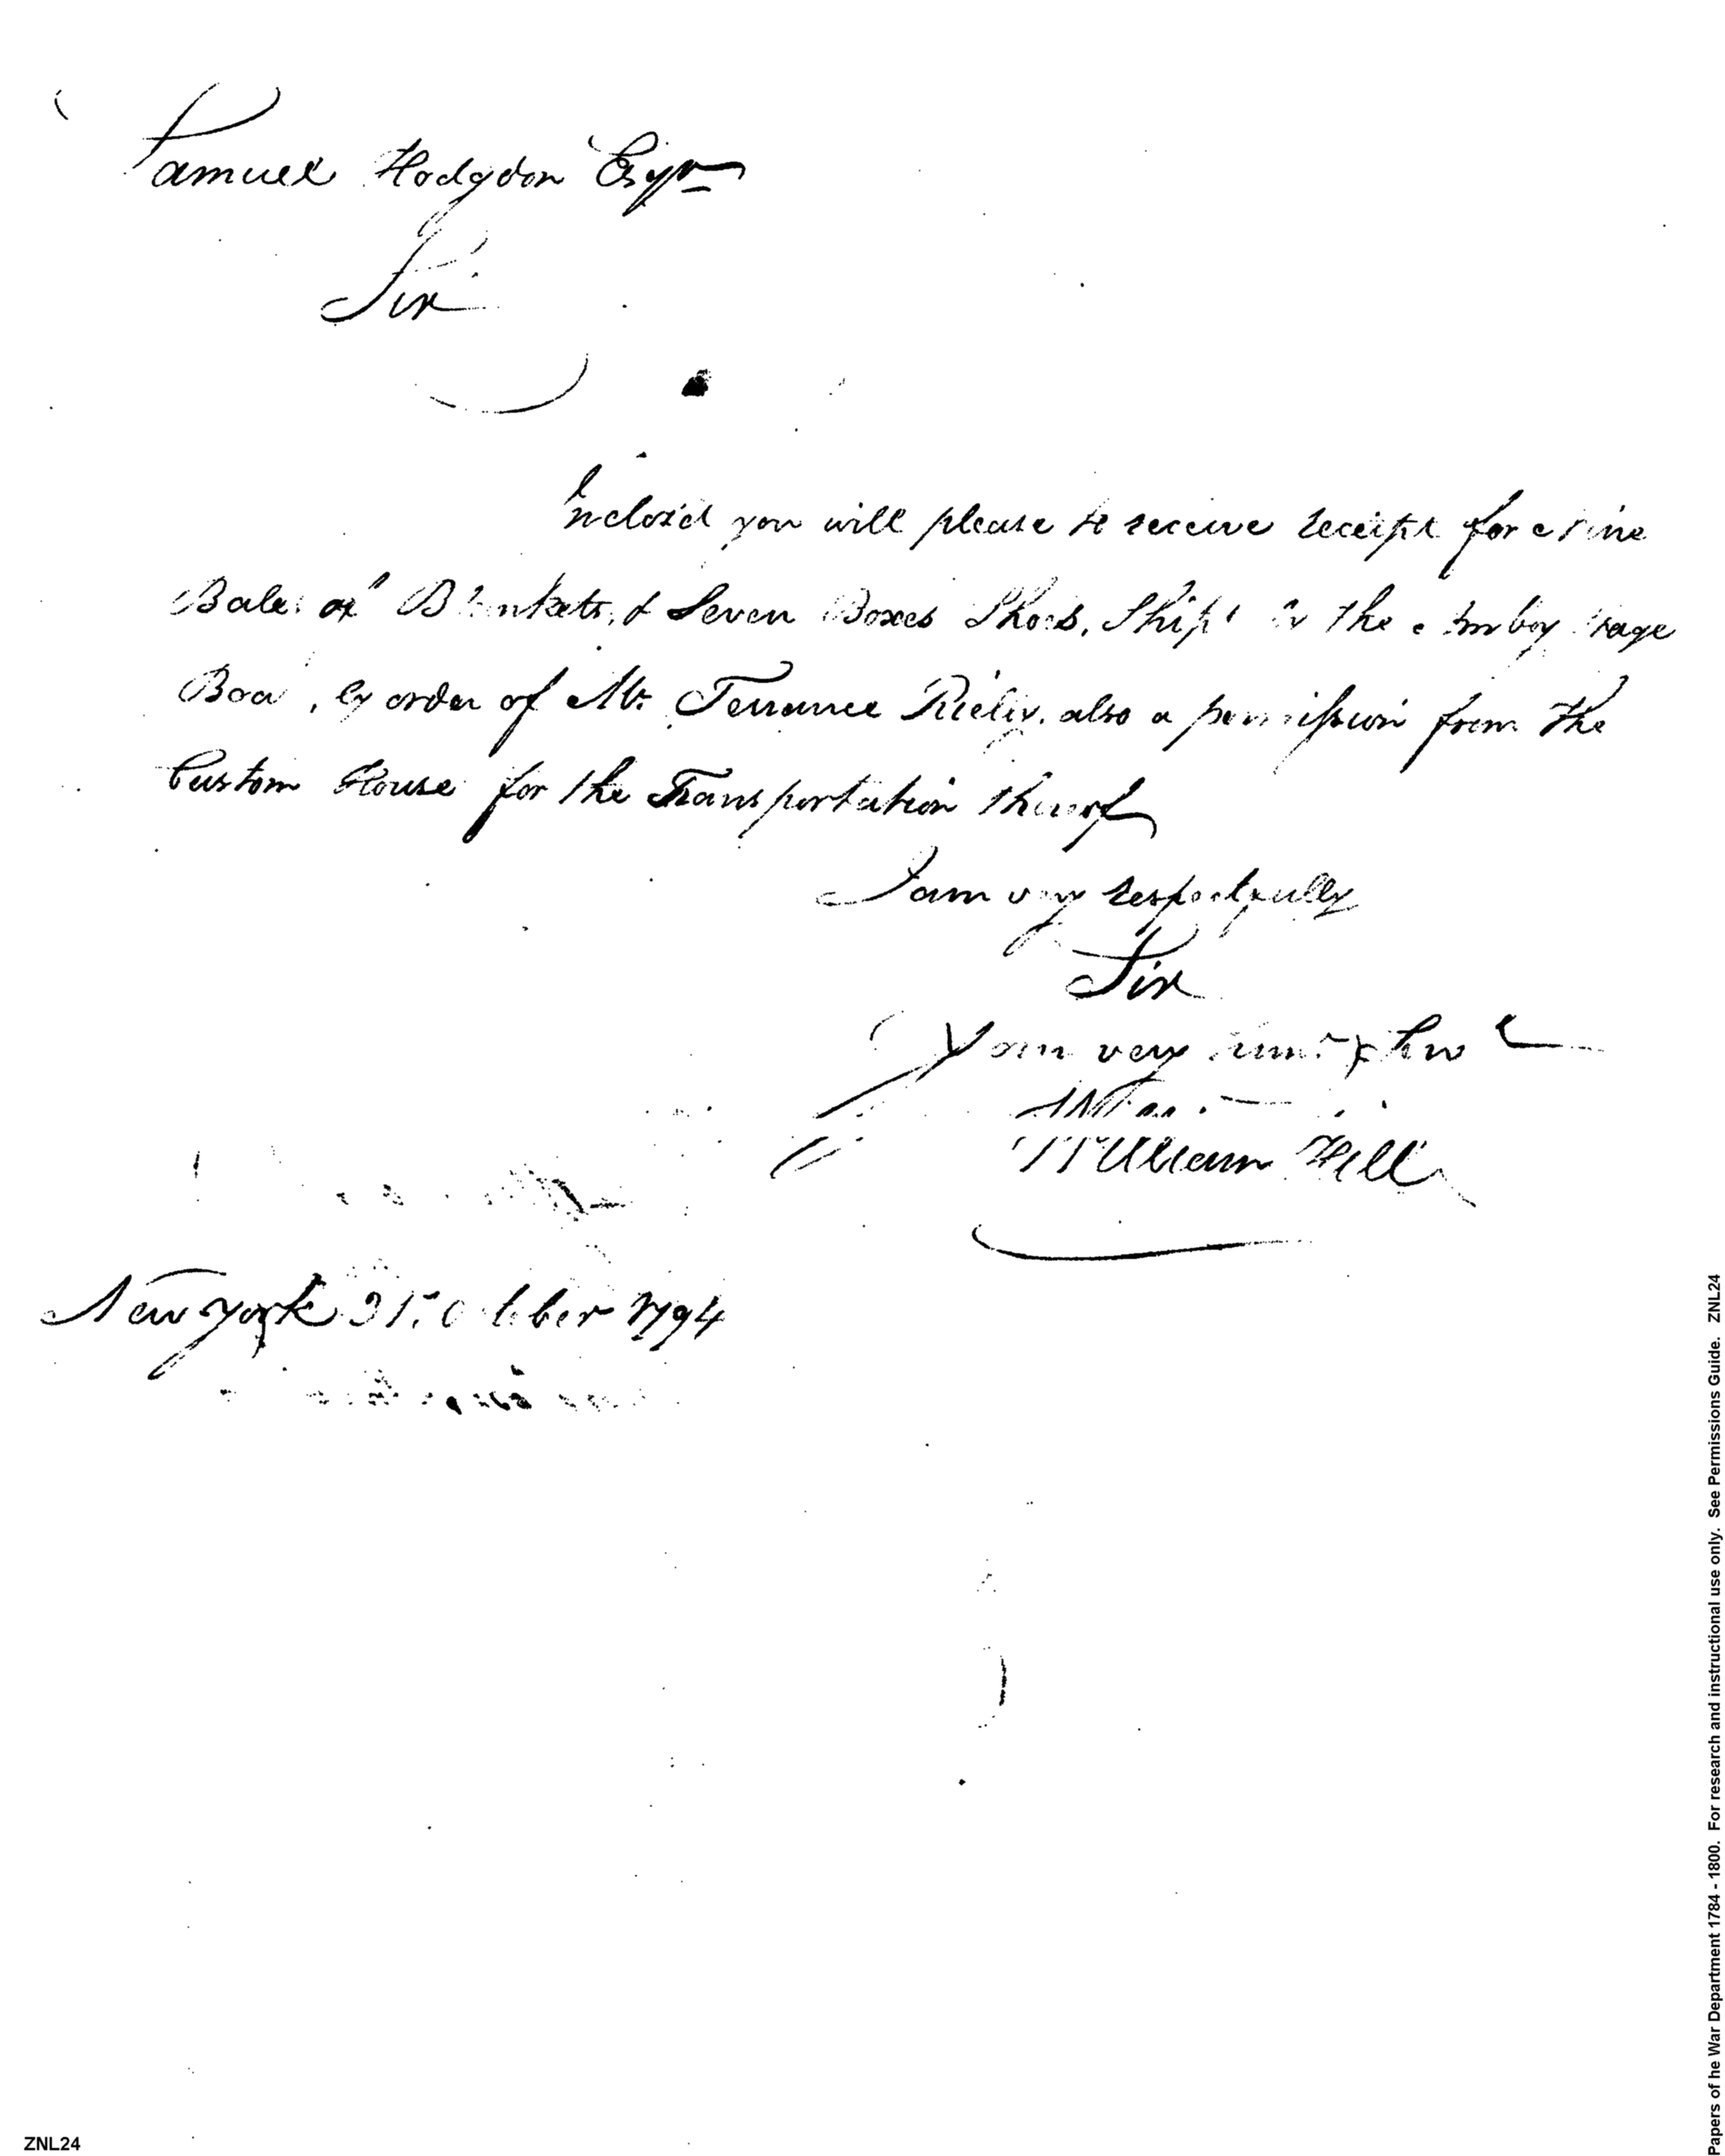 Samuel Hodgdon Esqr
Sir
Inclos'd you will please to receive receipt for Nine
Bales of Blankets, & Seven Boxes Shoes, Ship'd in the Amboy Stage
Boat, by order of Mr. Terrance Rieliy. also a permission from the
Custom House for the Transportation thereof
I am very respectfully
Sir
Your very humb
William Hill
New york 31st October 1794
ZNL24
Papers of he War Department 1784 - 1800. For research and instructional use only. See Permissions Guide. ZNL24